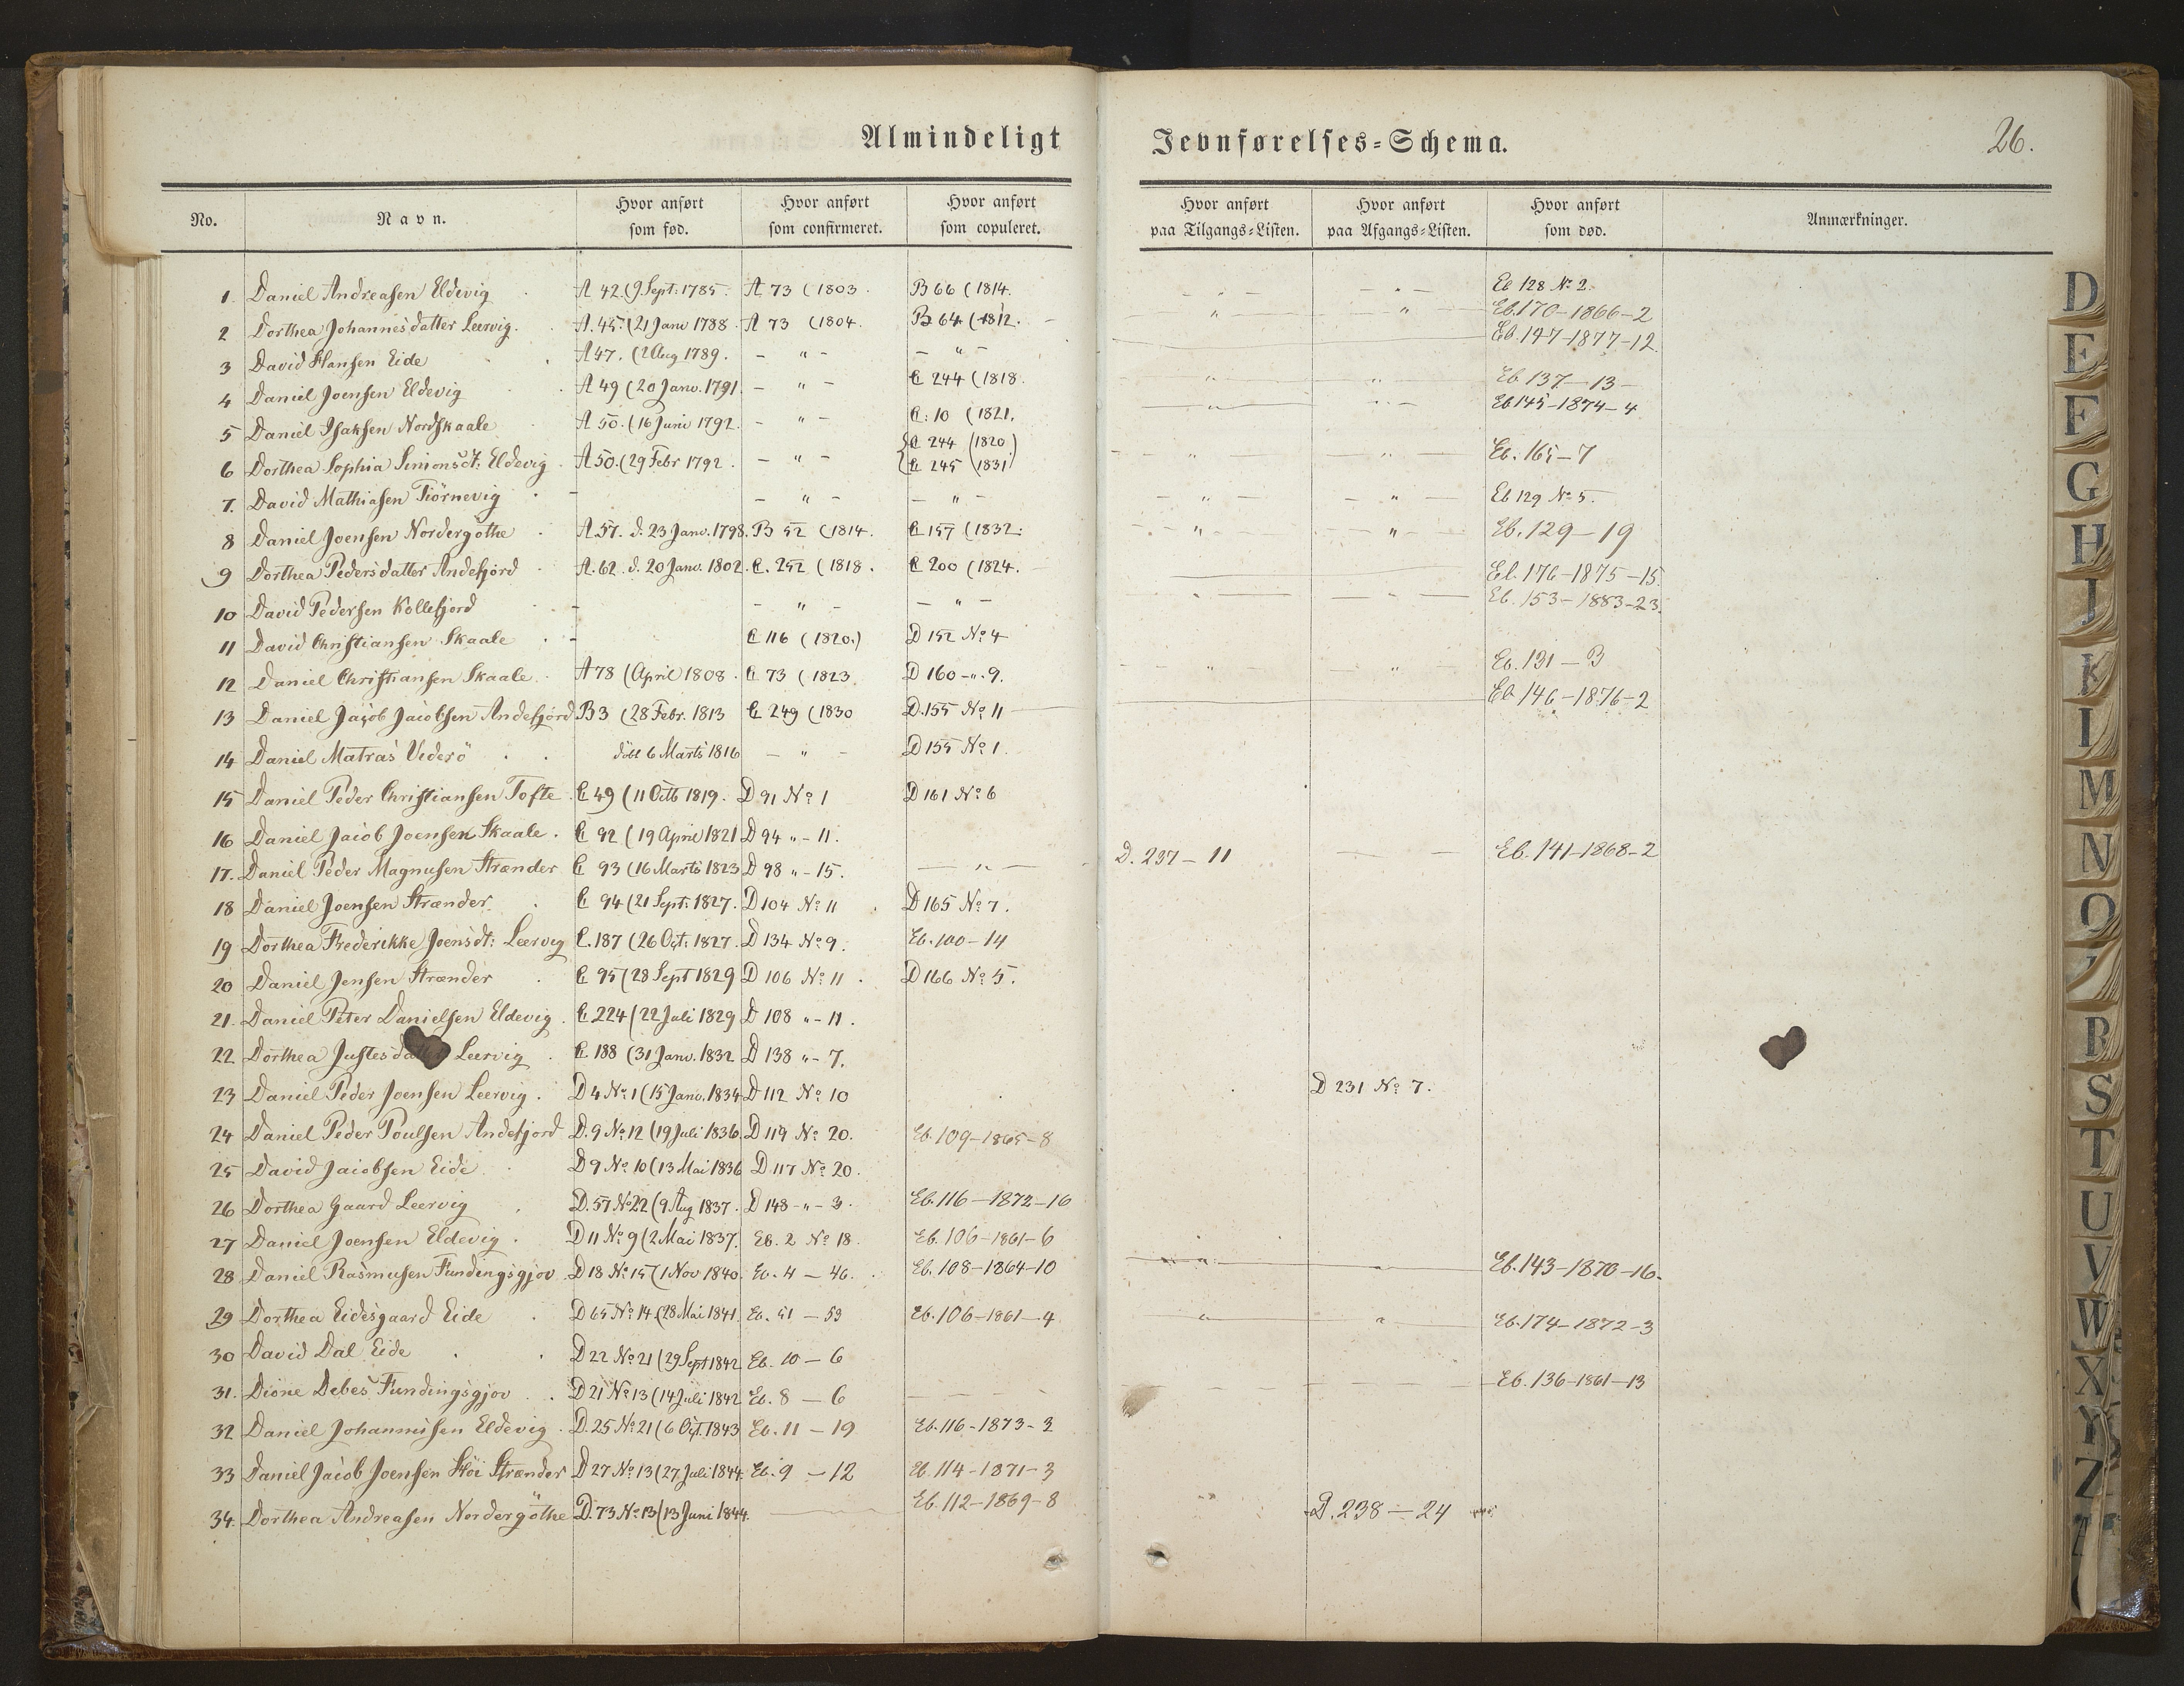 Almindeligt Jevnførelses=Schema. 26.
No. Navn. Hvor anført som fød. Hvor anført som confirmeret. Hvor anført som copuleret. Hvor anført paa Tilgangs=Listen. Hvor anført paa Afgangs=Listen. Hvor anført som død. Anmærkninger.
1. Daniel Andreasen Eldevig A 42 (9 Sept. 1785. A 73 (1803. B 66 (1814. - " - - " - Eb 128 No 2.
2 Dorthea Johannesdatter Leervig. A. 45. (21 Janv 1788. A 73 (1804. B 64 (1812. - " - " Eb. 170-1866-2
3 David Hansen Eide A 47. (2 Aug 1789. - " - - " - Eb. 147-1877-12.
4 Daniel Joensen Eldevig A 49 (20 Janv. 1791. - " - C 244 (1818. " " Eb 137-13-
5 Daniel Isaksen Nordskaale A 50. (16 Juni 1792. - " - C. 10 (1821. " - - Eb 145-1874-4
6 Dorthea Sophia Simonsdt: Eldevig A 50. (29 Febr 1792. - " - {C 244 (1820.) C 245 (1831) - " - - " - Eb. 165-7
7. David Mathiasen Tiörnevig - - " - - " - - " - - " - Eb 129 No 5.
8 Daniel Joensen Nordergöthe A. 57. d. 23 Janv. 1798. B 52 (1814. C 157 (1832. - " - - " - Eb. 129-19
9 Dorthea Pedersdatter Andefjord A. 62. d. 20 Janv. 1802. C. 252 (1818. C 200 (1824. Eb. 176-1875-15.
10 David Pedersen Kollefjord - - " - - " - - " - - " - Eb. 153-1883-23.
11 David Christiansen Skaale - C 116 (1820.) D 152 No 4
12 Daniel Christiansen Skaale A 78 (April 1808. C 73 (1823. D 160 - " - 9. - " - " - Eb. 131-3
13 Daniel Jacob Jacobsen Andefjord B 3 (28 Febr. 1813 C 249 (1830 D. 155 No 11 Eb 146-1876-2
14 Daniel Matras Viderö döbt 6 Marts 1816 - " - D 155 No 1.
15 Daniel Peder Christiansen Tofte C 49 (11 Octb 1819. D 91 No 1 D 161 No 6
16 Daniel Jacob Joensen Skaale. C 92 (19 April 1821 D 94 " - 11.
17. Daniel Peder Magnusen Strænder C 93 (16 Marts 1823 D 98 " - 15. - " - D. 237-11 - - Eb. 141-1868-2
18 Daniel Joensen Strænder C 94 (21 Sept. 1827. D 104 No 11 D 165 No 7.
19 Dorthea Frederikke Joensdt: Leervig C. 187 (26 Oct. 1827. D 134 No 9. Eb. 100-14
20 Daniel Jensen Strænder C 95 (28 Sept 1829 D 106 No 11. D 166 No 5.
21. Daniel Peter Danielsen Eldevig. C 224 (22 Juli 1829 D 108 " - 11.
22 Dorthea Justesdatter Leervig. C. 188 (31 Janv. 1832 D 138 " - 7.
23 Daniel Peder Joensen Leervig. D 4 No 1 (15 Janv. 1834 D 112 No 10 D 231 No 7.
24 Daniel Peder Poulsen Andefjord D. 9 No 12 (19 Juli 1836. D 119 No 20. Eb. 109-1865-8
25 David Jacobsen Eide D 9 No 10 (13 Mai 1836 D. 117 No 20.
26 Dorthea Gaard Leervig D. 57 No 22 (9 Aug 1837. D 148 - " - 3. Eb. 116-1872-16
27 Daniel Joensen Eldevig. D 11 No 9 (2 Mai 1837. Eb. 2 No 18. Eb. 106-1861-6
28 Daniel Rasmusen Fundingsgjov D 18 No 15 (1 Nov 1840. Eb. 4 - 46. Eb. 108-1864-10 " " Eb. 143-1870-16.
29 Dorthea Eidesgaard Eide D 65 No 14 (28 Mai 1841. Eb. 51 - 53 Eb. 106-1861-4 " " Eb. 174-1872-3
30 David Dal Eide D 22 No 21 (29 Sept 1842 Eb. 10 - 6
31. Dione Debes Fundingsgjov D 21 No 13 (14 Juli 1842 Eb. 8 - 6 - - - - Eb. 136-1861-13
32 Daniel Johannissen Eldevig. D. 25 No 21 (6 Oct. 1843 Eb. 11 - 19 Eb. 116-1873-3
33 Daniel Jacob Joensen Strænder D 27 No 13 (27 Juli 1844. Eb. 9 - 12 Eb. 114-1871-3
34. Dorthea Andreasen Nordergöthe D. 73 No 13 (13 Juni 1844. Eb. 112-1869-8 D. 238-24
D
E
F
G
H
J
K
L
M
N
O
R
S
T
U
V
W
X
Y
Z